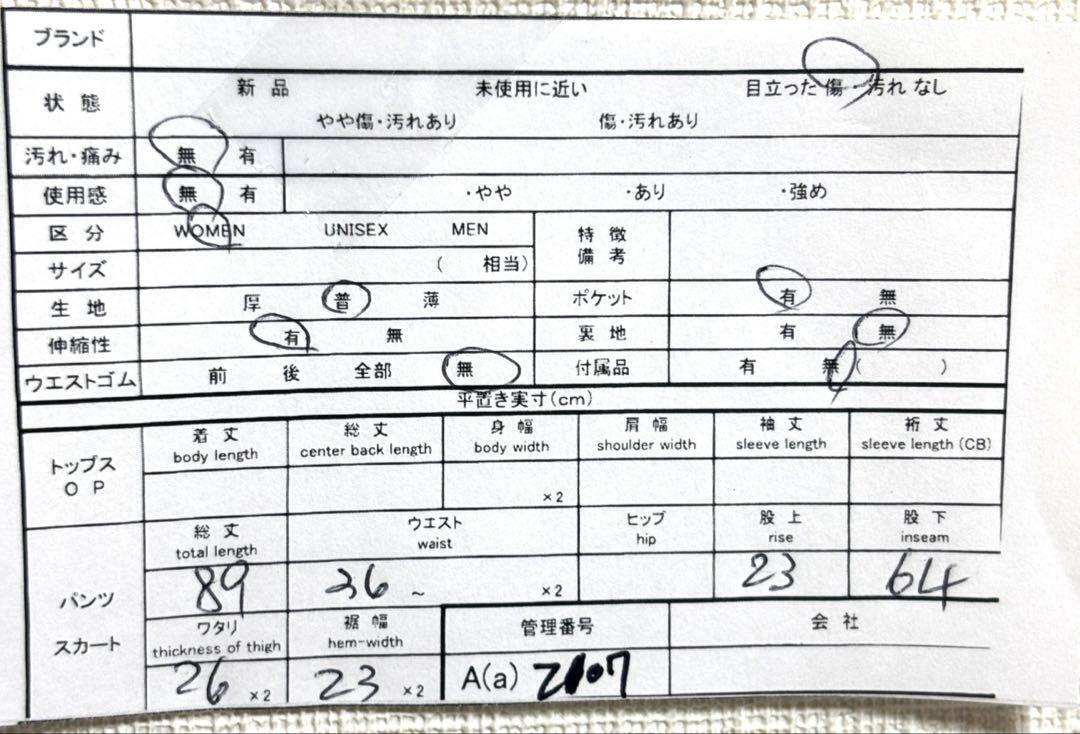 ブランド
状態 新品 未使用に近い 目立った傷・汚れなし
やや傷・汚れあり 傷・汚れあり
汚れ・痛み 無 有
使用感 無 有 ・やや ・あり ・強め
区分 WOMEN UNISEX MEN 特徴
備考
サイズ ( 相当)
生地 厚 普 薄 ポケット 有 無
伸縮性 有 無 裏地 有 無
ウエストゴム 前 後 全部 無 付属品 有 無 ( )
平置き実寸(cm)
トップス
OP
着丈 総丈 身幅 肩幅 袖丈 裄丈
body length center back length body width shoulder width sleeve length sleeve length (CB)
×2
パンツ
スカート
総丈 ウエスト ヒップ 股上 股下
total length waist hip rise inseam
89 36 ~ ×2 23 64
ワタリ 裾幅 管理番号 会社
thickness of thigh hem-width
26 ×2 23 ×2 A(a) 2107